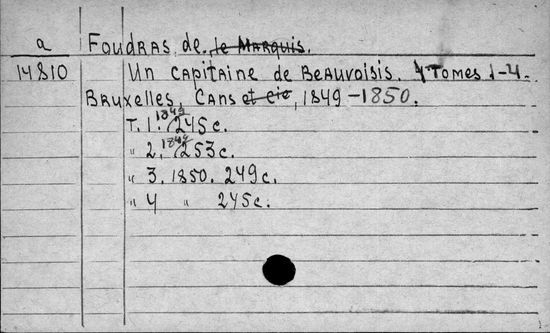 a Foudras, de. le Marquis.
14810 Un capitaine de Beauvoisis. 4 Tomes 1-4.
Bruxelles, Cans et Cie, 1849-1850.
T. 1. 1849 245c.
" 2. 1849 253c.
" 3. 1850. 249c.
" 4 " 245c.